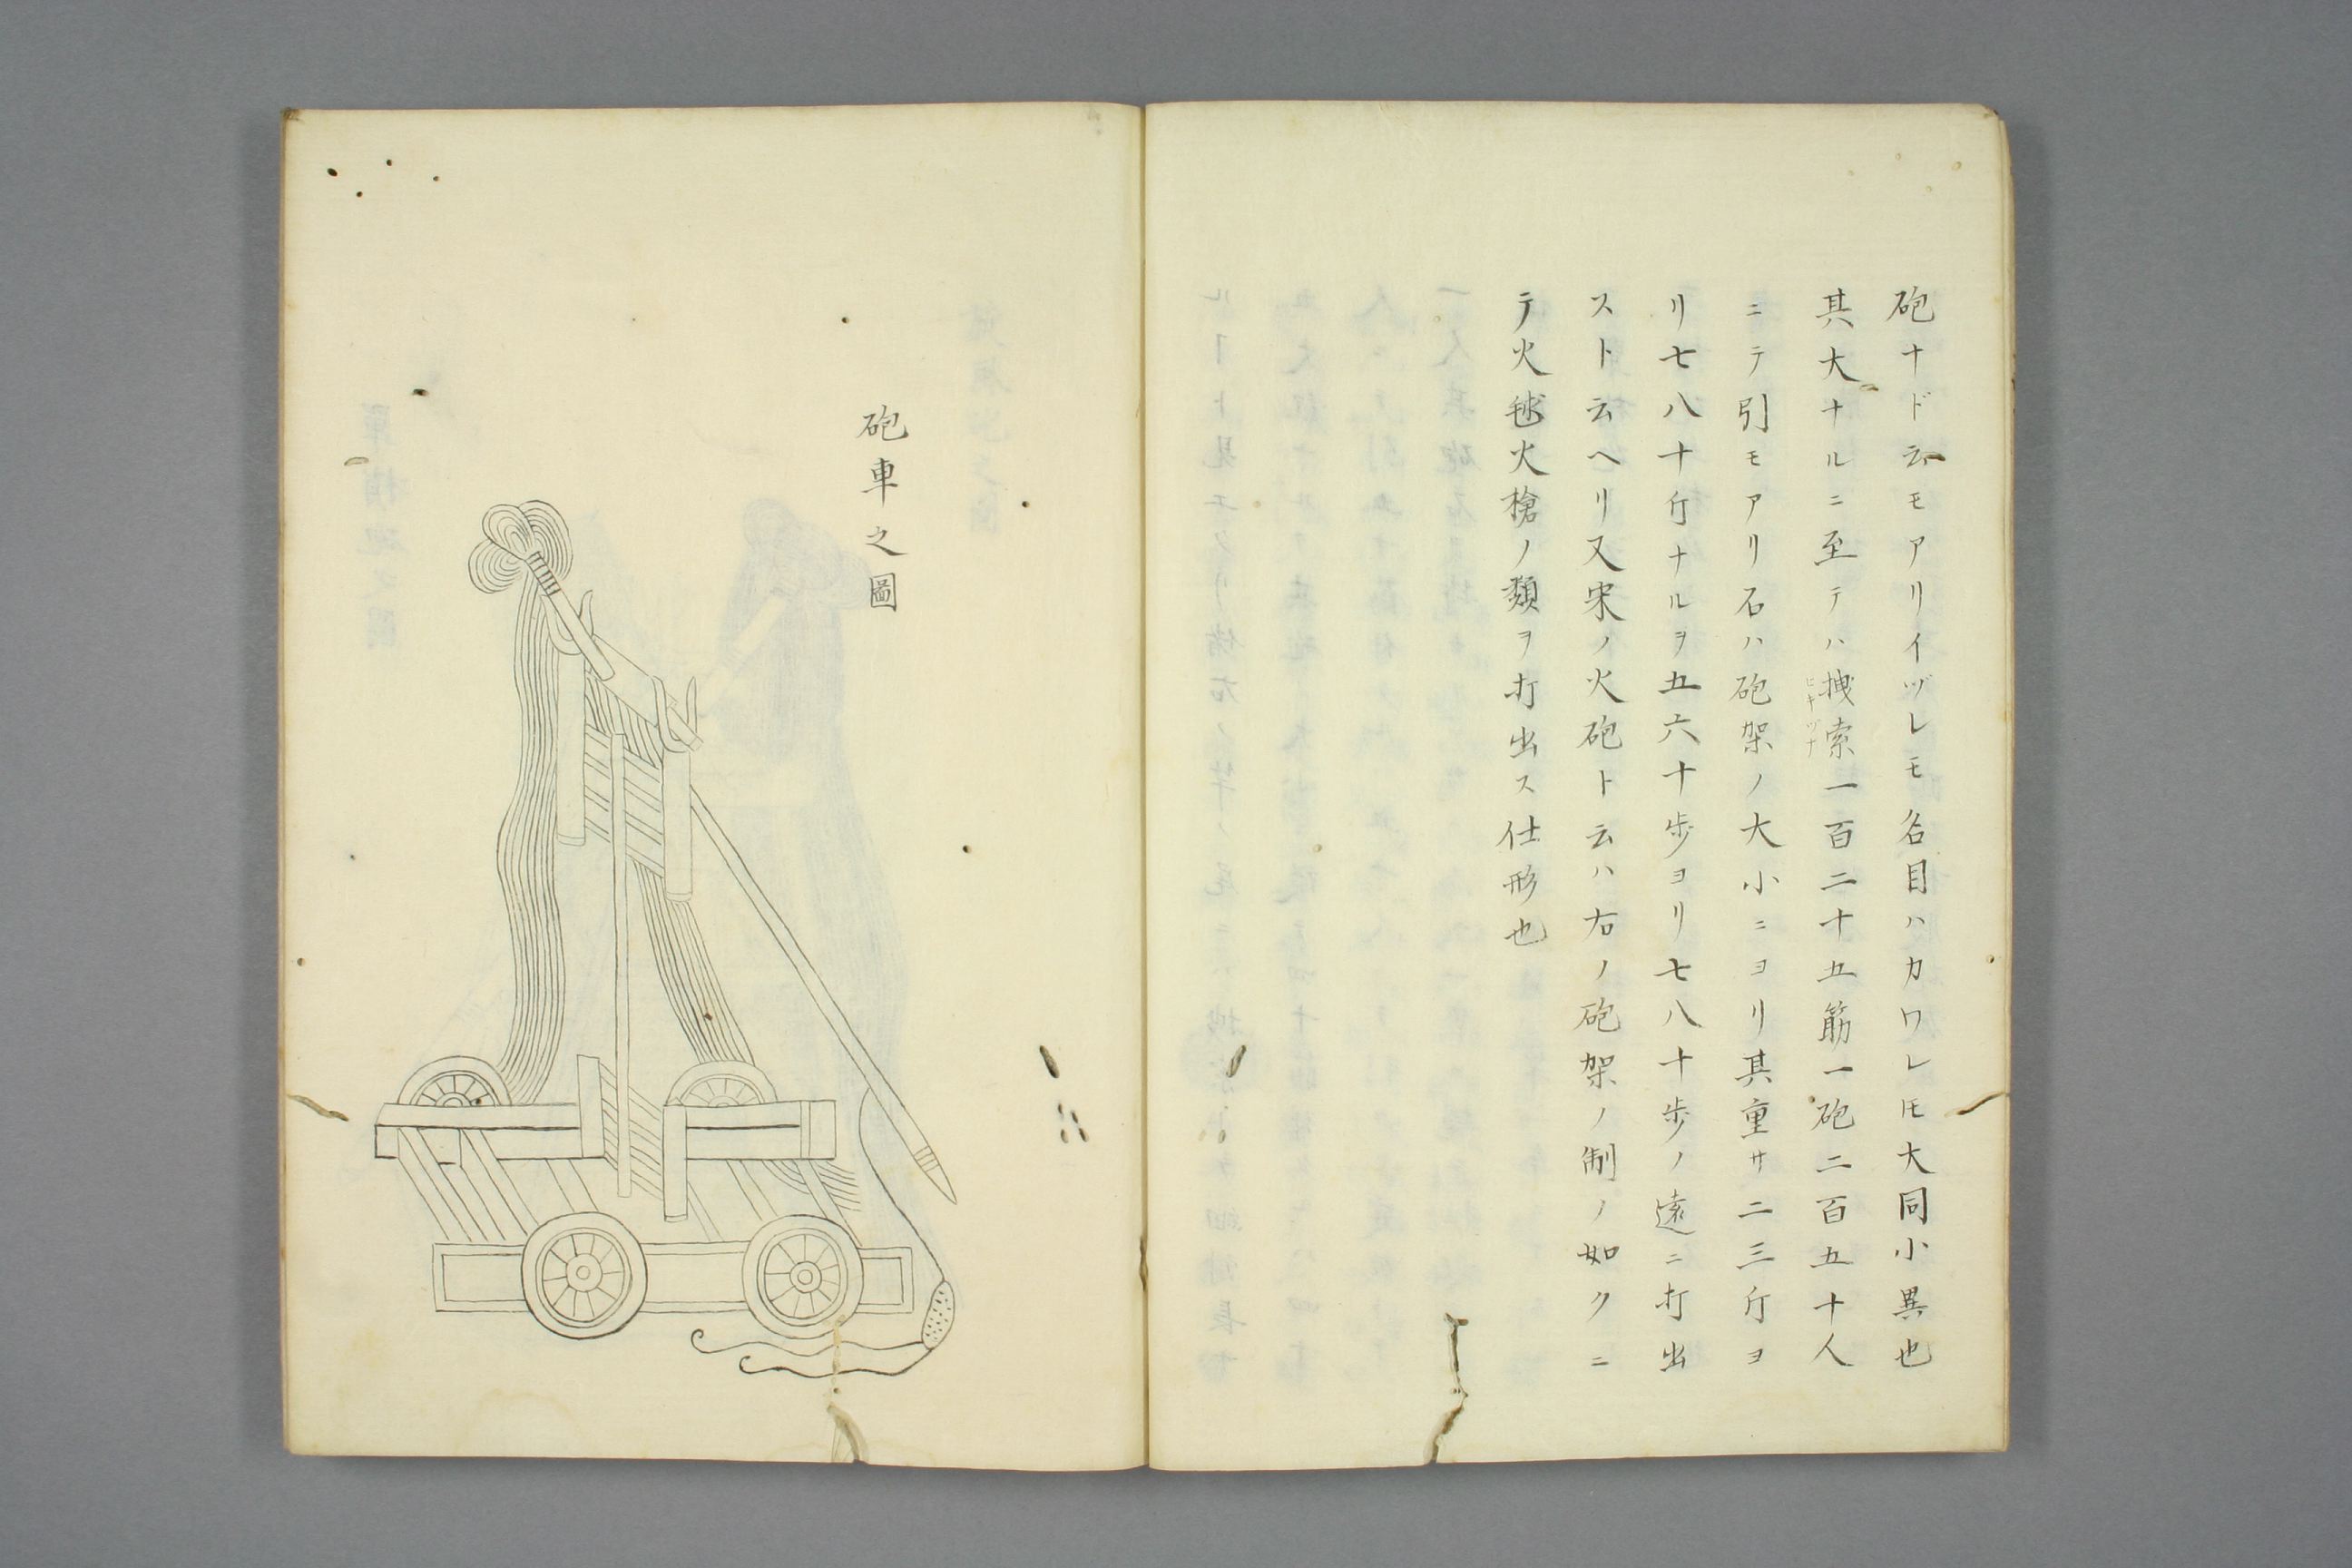 砲ナド云モアリイヅレモ名目ハカワレ𪜈大同小異也
其大ナルニ至テハ拽索一百二十五筋一砲二百五十人
ヒキヅナ
ニテ引モアリ石ハ砲架ノ大小ニヨリ其重サ二三斤ヨ
リ七八十斤ナルヲ五六十歩ヨリ七八十歩ノ遠ニ打出
スト云ヘリ又宋ノ火砲ト云ハ右ノ砲架ノ制ノ如クニ
テ火毬火槍ノ類ヲ打出ス仕形也
砲車之圖